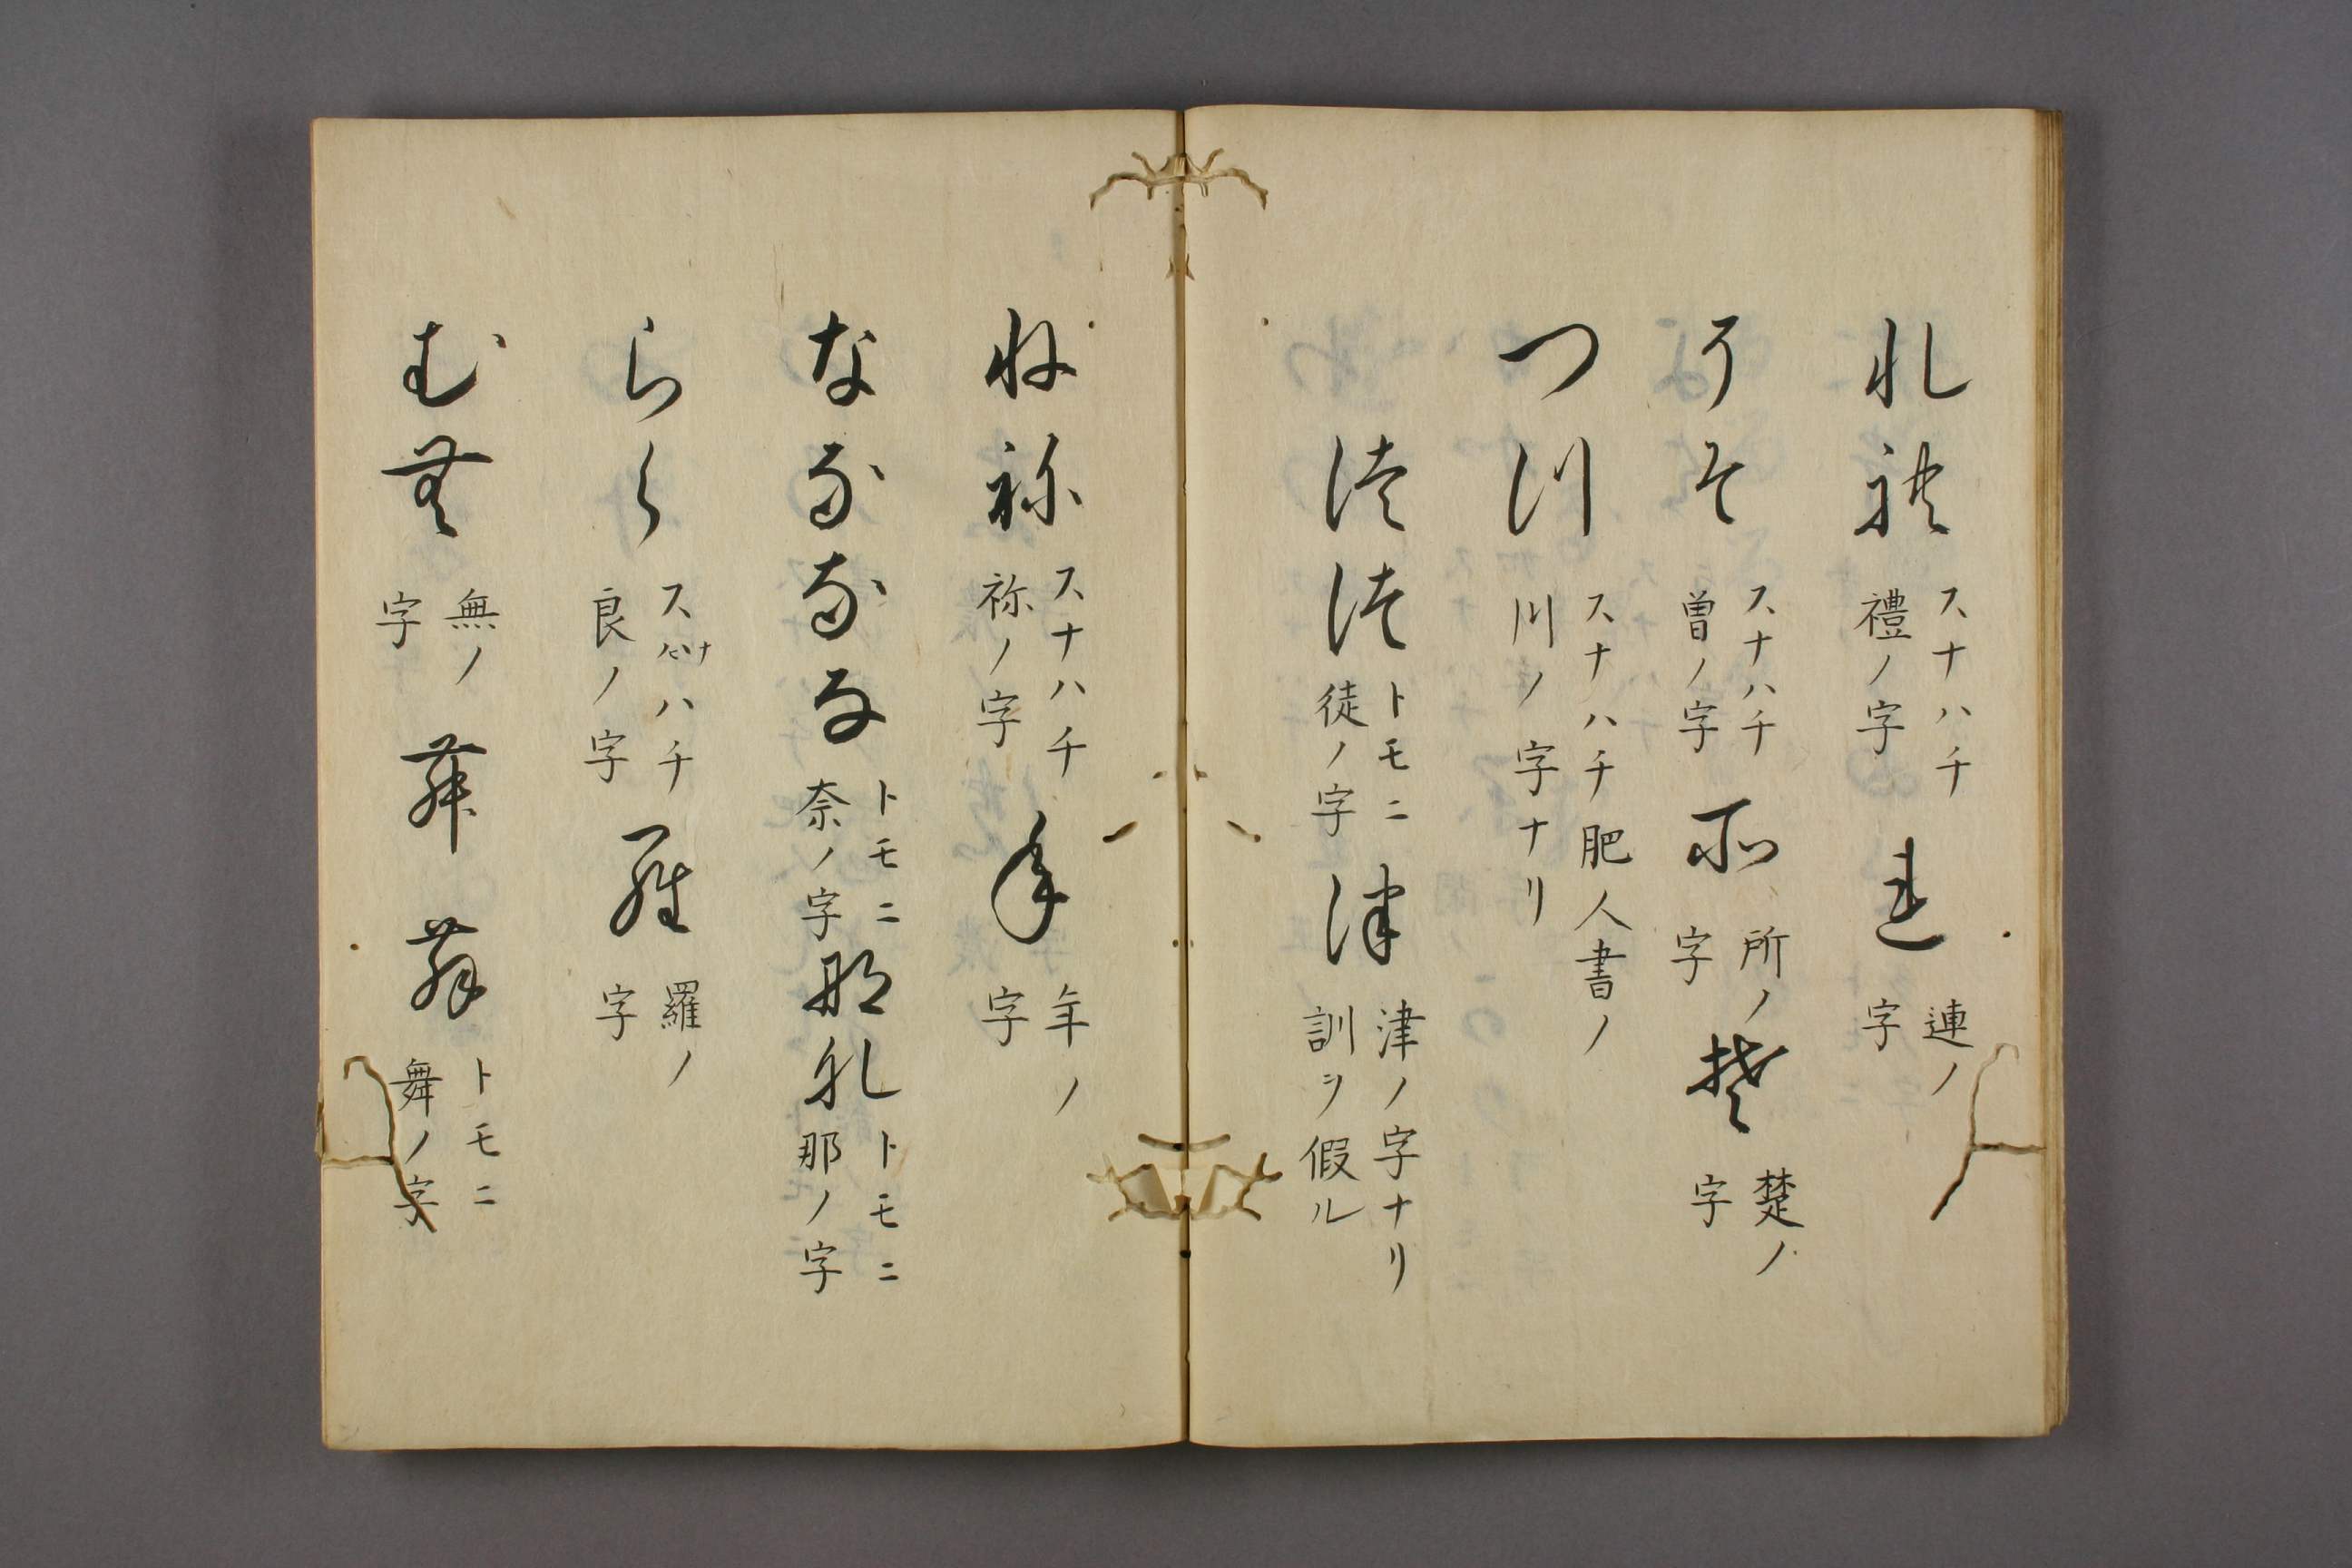 れ礼 スナハチ禮ノ字 連 連ノ字
そそ スナハチ曽ノ字 所 所ノ字 楚 楚ノ字
つ川 スナハチ肥人書ノ川ノ字ナリ
徒徒 トモニ徒ノ字 津 津ノ字ナリ訓ヲ假ル
ね祢 スナハチ祢ノ字 年 年ノ字
なななな トモニ奈ノ字 那那 トモニ那ノ字
らら スナハチ良ノ字 羅 羅ノ字
む無 無ノ字 舞舞 トモニ舞ノ字